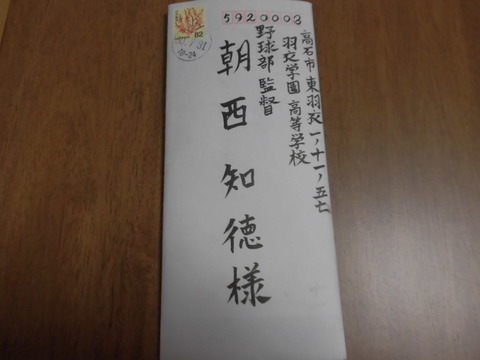 5920003
高石市 東羽衣一ノ十一ノ五七
羽衣学園 高等学校
野球部 監督
朝西知徳様
82